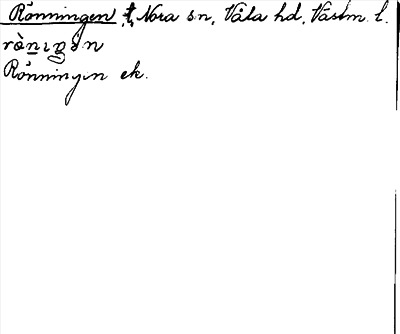 Rönningen, t, Nora sn, Våla hd, Västm. l.
Rönningen ek.